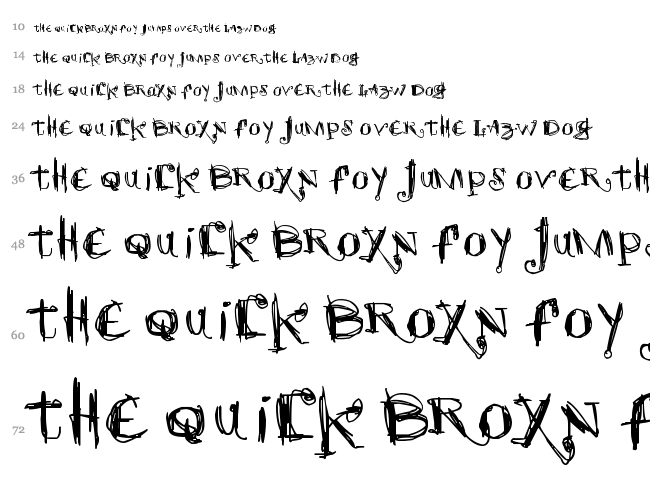 10 tHE QUiCk BROXN foy JUMPS OVER tHE LA3W DOg
14 tHE QUiCk BROXN foy JUMPS OVER tHE LA3W DOg
18 tHE QUiCk BROXN foy JUMPS OVER tHE LA3W DOg
24 tHE QUiCk BROXN foy JUMPS OVER tHE LA3W DOg
36 tHE QUiCk BROXN foy JUMPS OVER tH
48 tHE QUiCk BROXN foy JUMPS
60 tHE QUiCk BROXN foy
72 tHE QUiCk BROXN f